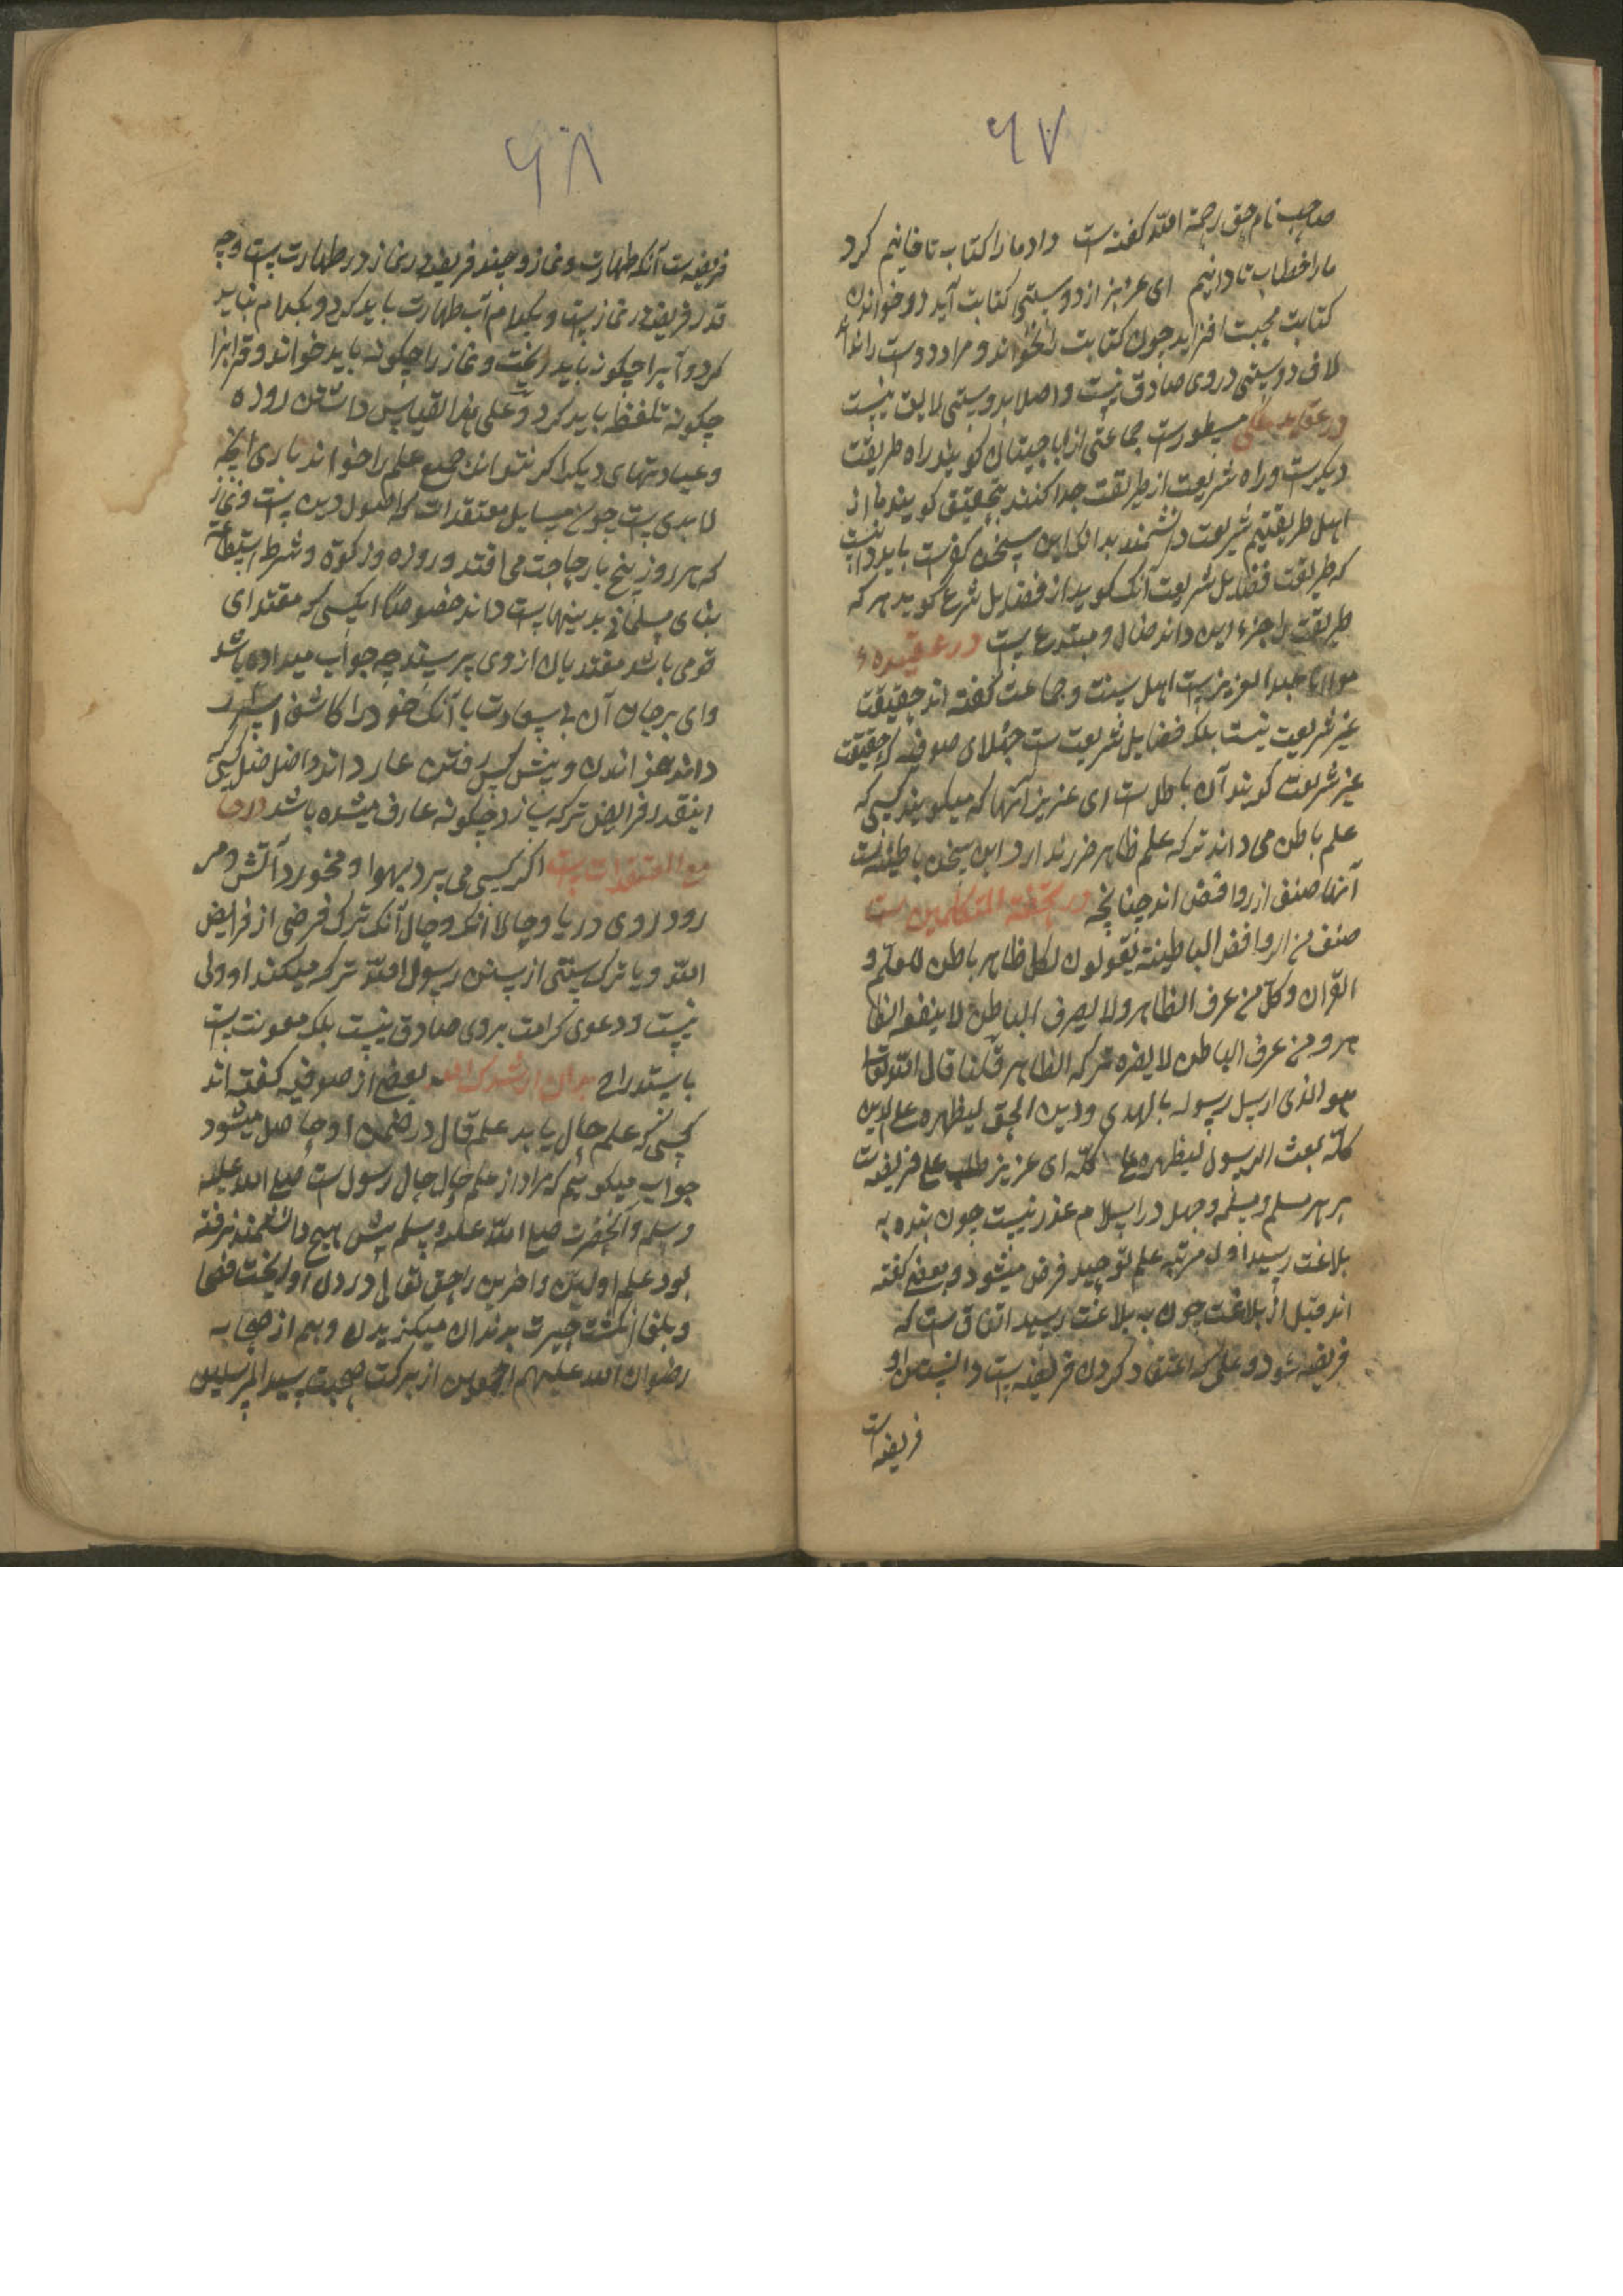 ٦٧
صاحب نام حق رحمة الله کفته است داد ما را کتاب تا خانیم کرد
ما را خطاب تا دانیم ای عزیز از دوستی کتابت آید و خواندن
کتابت محبت افزاید چون کتابت را نخواند و مراد دوست را نداند
لاف دوستی در وی صادق نیست و اصلا بدوستی لایق نیست
در عقیده مسطورست جماعتی از اباحیتان کویند راه طریقت
دیکرست و راه شریعت از طریقت جدا کنند بتحقیق کویند ما از
اهل طریقتیم شریعت دانشمند بدانکه این سخن کفرست باید دانست
که طریقت فضایل شریعت آنک کوید از فضایل شرع کوید هر که
طریقت را جزء این داند ضال و مبتدع است در عقیدهٔ
مولانا عبد العزیز است اهل سنت و جماعت کفته اند حقیقت
غیر شریعت نیست بلکه فضایل شریعت ست جهلای صوفیه که حقیقت
غیر شریعت کویند آن باطل ست ای عزیز آنها که میکویند کسی که
علم باطن می داند ترک علم ظاهر ضرر ندارد این سخن باطنیه است
آنها صنف از روافض اند چنانچه در تحفة المتکلمین ست
صنف من الروافض الباطینة یقولون لکل ظاهر باطن للعلم و
القرآن و کل من عرف الظاهر و لا یعرف الباطن لا ینفعه الظا
هر و من عرف الباطن لا یضره ترک الظاهر قلنا قال الله تعالی
هو الذی ارسل رسوله بالهدی و دین الحق لیظهره علی الدین
کله بعث الرسول لیظهره علی کله ای عزیز طلب علم فریضه ست
بر هر مسلم و مسلمه و جهل در اسلام عذر نیست چون بنده به
بلاغت رسید اول مرتبه علم توحید فرض میشود و بعضی کفته
اند قبل از بلاغت چون به بلاغت رسید اتفاق ست که
فریضه شود و علمی که اعتقاد کردن فریضه است دانستن او
فریضه است
٦٨
فریضه ست آنکه طهارت و نماز و چند فریضه در نماز در طهارت است و چه
قدر فریضه در نماز است و بکدام آب طهارت باید کرد و بکدام نباید
کرد و آبرا چکونه باید ریخت و نماز را چکونه باید خواند و قرائرا
چکونه تلفظ باید کرد و علی هذا القیاس داشتن روزه
و عبادتهای دیکر اکر نتواند جمیع علم را خواند باری آنچه
لابدی است چون مسایل معتقدات که اصول دین است و نماز
که هر روز پنج بار حاجت می افتد و روزه و زکوة و شرط استطاعة
بنای مسلمانی بدینهاست داند خصوصا کسی که مقتدای
قومی باشد مقتدیان از وی پرسند چه جواب میداده باشد
وای بر جان آن بی سعادت با آنک خود را کاشف اسرار
داند خواندن و پیش کس رفتن عار داند و اصل ضلل کسی
اینقدر فرایض ترک سازد چکونه عارف میشده باشد در جا
مع المعتقدات است اکر کسی می پرد بهوا و میخورد آتش و می
رود روی دریا و حالا آنک و حال آنک ترک فرضی از فرایض
الله و یا ترک سنتی از سنن رسول الله ترک میکند او ولی
نیست و دعوی کرامت بروی صادق نیست بلکه معونت ست
یا استدراج بدان ارشدک الله بعضی از صوفیه کفته اند
کسی که علم حال یابد علم قال در ضمن او حاصل میشود
جواب میکوییم که مراد از علم حال حال رسول ست صلی الله علیه
و سلم و آنحضرت صلی الله علیه و سلم پیش هیچ دانشمند نرفته
بود علم اولین و اخرین را حق تعالی در دل او ریخت فصحا
و بلغا انکشت حیرت بدندان میکزیدن و هم از صحابه
رضوان الله علیهم اجمعین از برکت صحبت سید المرسلین